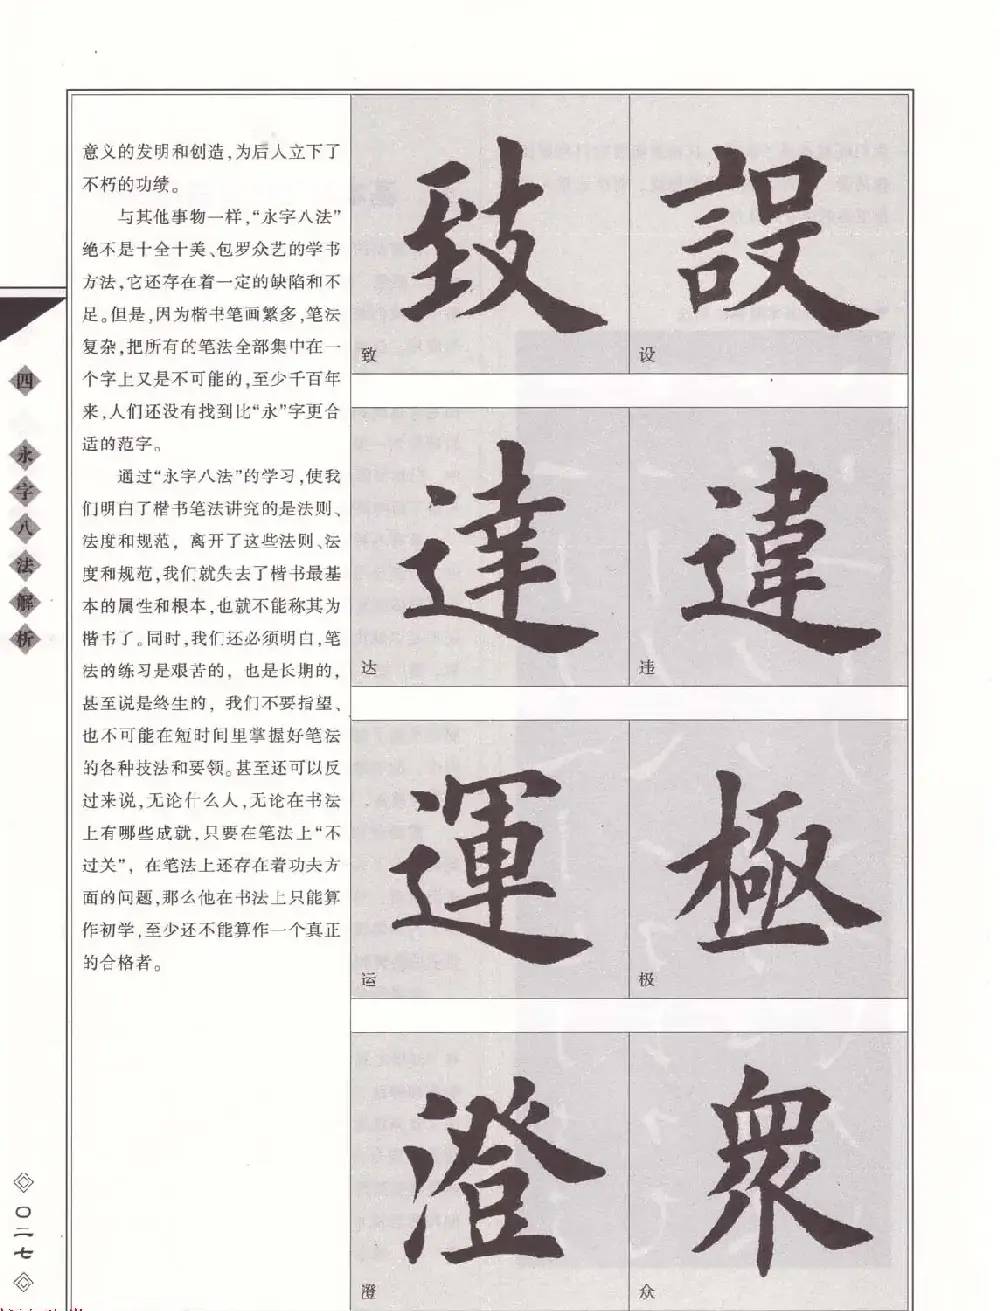 意义的发明和创造,为后人立下了
不朽的功绩。
与其他事物一样,“永字八法”
绝不是十全十美、包罗众艺的学书
方法,它还存在着一定的缺陷和不
足。但是,因为楷书笔画繁多,笔法
复杂,把所有的笔法全部集中在一
个字上又是不可能的,至少千百年
来,人们还没有找到比“永”字更合
适的范字。
通过“永字八法”的学习,使我
们明白了楷书笔法讲究的是法则、
法度和规范,离开了这些法则、法
度和规范,我们就失去了楷书最基
本的属性和根本,也就不能称其为
楷书了。同时,我们还必须明白,笔
法的练习是艰苦的,也是长期的,
甚至说是终生的,我们不要指望、
也不可能在短时间里掌握好笔法
的各种技法和要领。甚至还可以反
过来说,无论什么人,无论在书法
上有哪些成就,只要在笔法上“不
过关”,在笔法上还存在着功夫方
面的问题,那么他在书法上只能算
作初学,至少还不能算作一个真正
的合格者。
四 永字八法解析
〇二七
致 設
致 设
達 違
达 违
運 極
运 极
澄 衆
澄 众